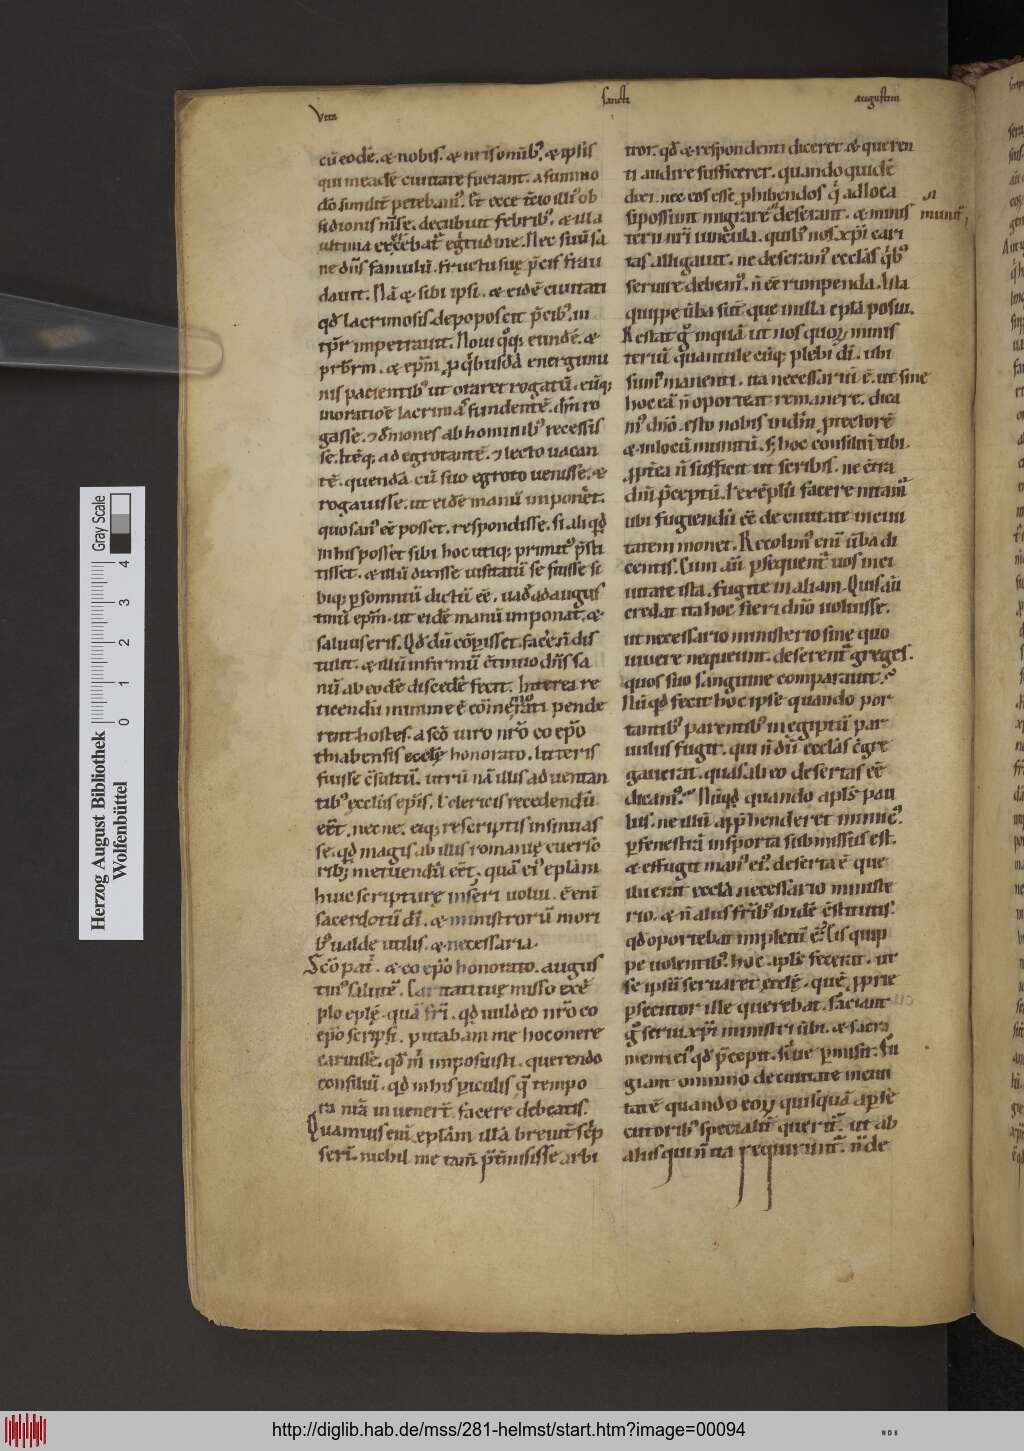 Vita
sancti
augustini
cū eodē. & nobis. & nr̄is omĩb;. & ipsis
qui in eadē ciuitate fuerant. a summo
dō similit̄ petebam;. Et ecce t̄cio illi; ob
sidionis m̄se. decubuit febrib;. & illa
ultima exc̄ebat̄ egritudine. Nec suū sa
ne dn̄s famulū. fructu suę p̄cis frau
dauit. Nā & sibi ipsi. & eidē ciuitati
qd̄ lacrimosis depoposcit p̄cib;. in
tp̄r impetrauit. Noui quoq; eundē. &
prb̄rm. & ep̄m. p̱ q̇busdā energumi
nis pacientib; ut oraret rogatū. eūq;
in oratioē lacrimas fundentē. dn̄m ro
gasse. & demones ab hominib; recessis
se. Itēq; ad egrotantē. & lecto uacan
tē. quendā cū suo egroto uenisse. &
rogauisse. ut eidē manū imponeret.
quo san; eē posset. respondisse. si aliqd̄
in his posset sibi hoc utiq; primit; p̄sti
tisset. & illū dixisse uisitatū se fuisse si
biq; p somniū dictū eē. uade ad augus
tinū ep̄m. ut eidē manū imponat. &
saluus eris. Qd̄ dū cōp̱isset. facere n̄ dis
tulit. & illū infirmū c̄tinuo dn̄s sa
nū ab eodē discedere fecit. Interea re
ticendū minime ē
rent hostes. a scō uiro nr̄o co ep̄o
thiabensis ecclę honorato. litteris
fuisse c̄sultū. utrū nā illis aduentan
tib; ecclīis ep̄is. l̄ clericis recedendū
eēt. necne. eiq; rescriptis insinuas
se. qd̄ magis ab illis romanię euerso
rib; metuendū eēt. quā ei; epl̄am
huic scripturę inseri uolui. ē enī
sacerdotū dī. & ministrorū mori
b; ualde utilis. & necessaria.
Scō patī. & co ep̄o honorato. augus
tin; salutē. Caritati tuę misso exē
plo eplę. quā frī. qd̄ uuldeo nr̄o co
ep̄o scripsi. putabam me hoc onere
caruisse. qd̄ m̄ imposuisti. querendo
consiliū. qd̄ in his p̱iculis q̄ tempo
ra nr̄a inuenert̄. facere debeatis.
Quamuis enī epl̄am illā breuit̄ sc̄p
serī. nichil me tam̄ p̄t̄misisse arbi
tror. qd̄ & respondenti dicere. & queren
ti audire sufficeret. quando quidē
dixi. nec eos esse p̱hibendos q̇ ad loca
si possunt migrare desiderant. & minis
munita
terii nr̄i uincula. quib; nos xp̄i cari
tas alligauit. ne deseram; eccl̄as q̇b;
seruire debem;. n̄ eē rumpenda. Ista
quippe ūba sunt que in illa epl̄a posui.
Restat g̊ inquā ut nos quoꝝ minis
teriū quantule cūq; plebi dī. ubi
sum; manenti. ita necessariū ē. ut sine
hoc eā n̄ oporteat remanere. dica
m; dn̄o. esto nobis in dm̄ p̱tectorē
& in locū munitū. Sȝ hoc consiliū tibi
p̱pt̄ea n̄ sufficit ut scribis. ne c̄tra
dn̄i p̄ceptū. l̄ exēplū facere nitam̄
ubi fugiendū eē de ciuitate in ciui
tatem monet. Recolim; enī ūba di
centis. Cum aūt p̱sequent̄ uos in ci
uitate ista. fugite in aliam. Quis aūt
credat ita hoc fieri dn̄o uoluisse.
ut necessario ministerio sine quo
uiuere nequeunt. deserent̄ greges.
quos suo sanguine comparauit.
Nūqd̄ fecit hoc ipse quando por
tantib; parentib; in egiptū par
uulus fugit. qui n̄ dū eccl̄as c̄gre
gauerat. quas ab eo desertas eē
dicam;. Nūqd̄ quando apl̄s pau
lus. ne illū app̄henderet inimic;.
p̱ fenestrā in sporta submissus est.
& effugit man; ei;. deserta ē que
ibi erat eccl̄a necessario ministe
rio. & n̄ aliis frīb; ibidē c̄stitutis.
qd̄ oportebat impletū ē? Eis quip
pe uolentib; hoc apl̄s fecerat. ut
se ipsū seruaret ecclę. quē p̱prie
p̱secutor ille querebat. Faciant
g̊ serui xp̄i ministri ūbi. & sacra
menti ei; qd̄ p̄cepit. siue p̱misit. Fu
giant omnino de ciuitate in ciui
tatē quando eoꝝ quisquā a p̱se
cutorib; specialit̄ querit̄. ut ab
aliis qui n̄ ita requirunt̄. n̄ de
Herzog August Bibliothek
Wolfenbüttel
0 1 2 3 4
Gray Scale
http://diglib.hab.de/mss/281-helmst/start.htm?image=00094